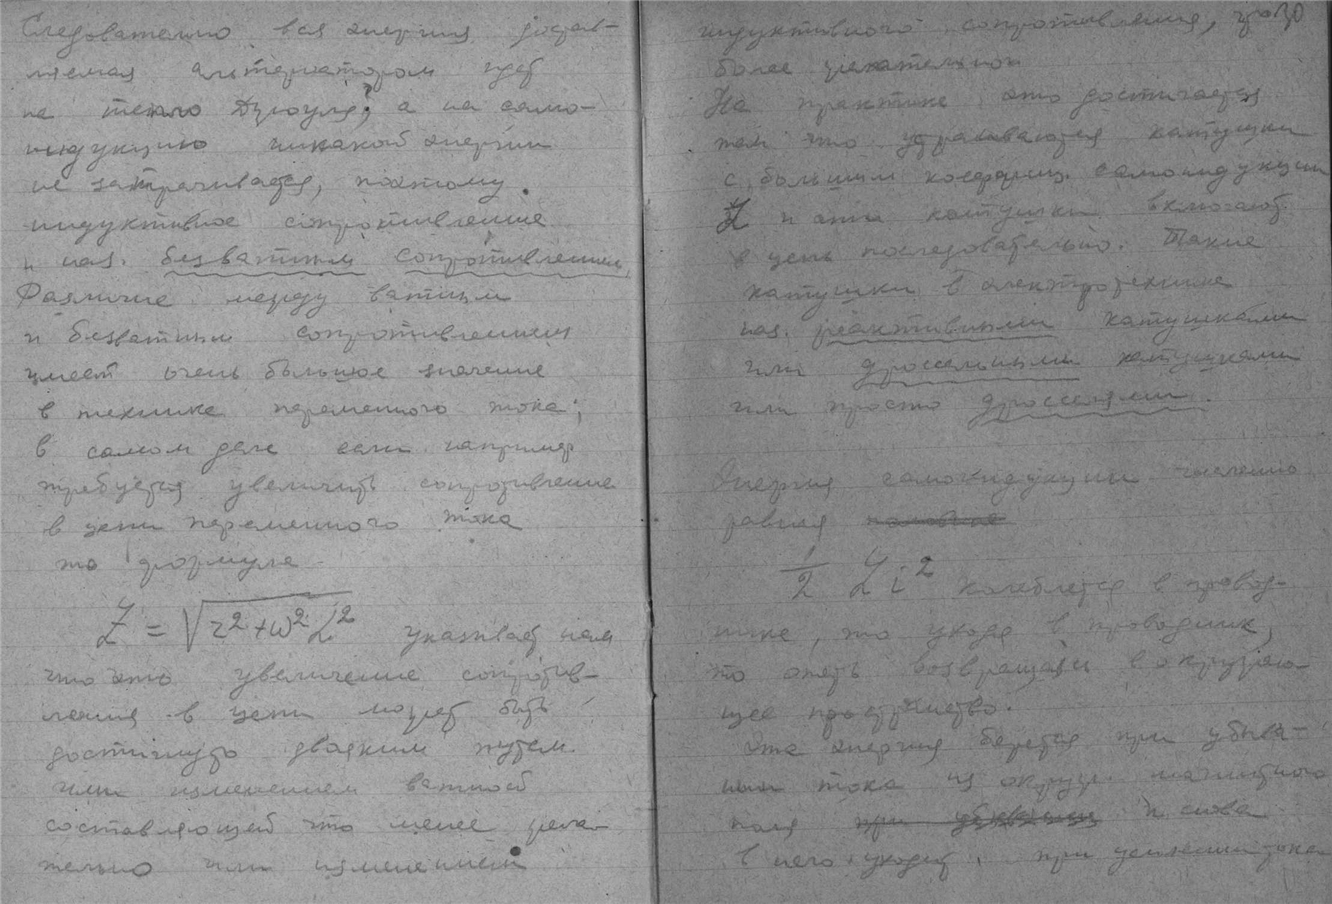 Следовательно вся энергия достав-
ляемая альтернатором идет
на тепло Джоуля, а на само-
индукцию никакой энергии
не затрачивается, поэтому
индуктивное сопротивление
и наз. безватным сопротивлением.
Различие между ватным
и безватным сопротивлением
имеет очень большое значение
в технике переменного тока;
в самом деле если например
требуется увеличить сопротивление
в цепи переменного тока
то формула
Z = √r²+ω²L² указывает нам
что это увеличение сопротив-
ления в цепи может быть
достигнуто двояким путем
или изменением ватной
составляющей что менее жела-
тельно или изменением
индуктивного сопротивления, что 30
более желательно
На практике это достигается
тем что устраиваются катушки
с большим коэффиц. самоиндукции
L и эти катушки включают
в цепь последовательно. Такие
катушки в электротехнике
наз. реактивными катушками
или дроссельными катушками
или просто дросселями.
Энергия самоиндукции численно
равна
1/2 Li² колеблется в провод-
нике, то уходя в проводник,
то опять возвращаясь в окружаю-
щее пространство.
Эта энергия берется при убыва-
нии тока из окруж. магнитного
поля при и снова
в него уходит, при усилении тока